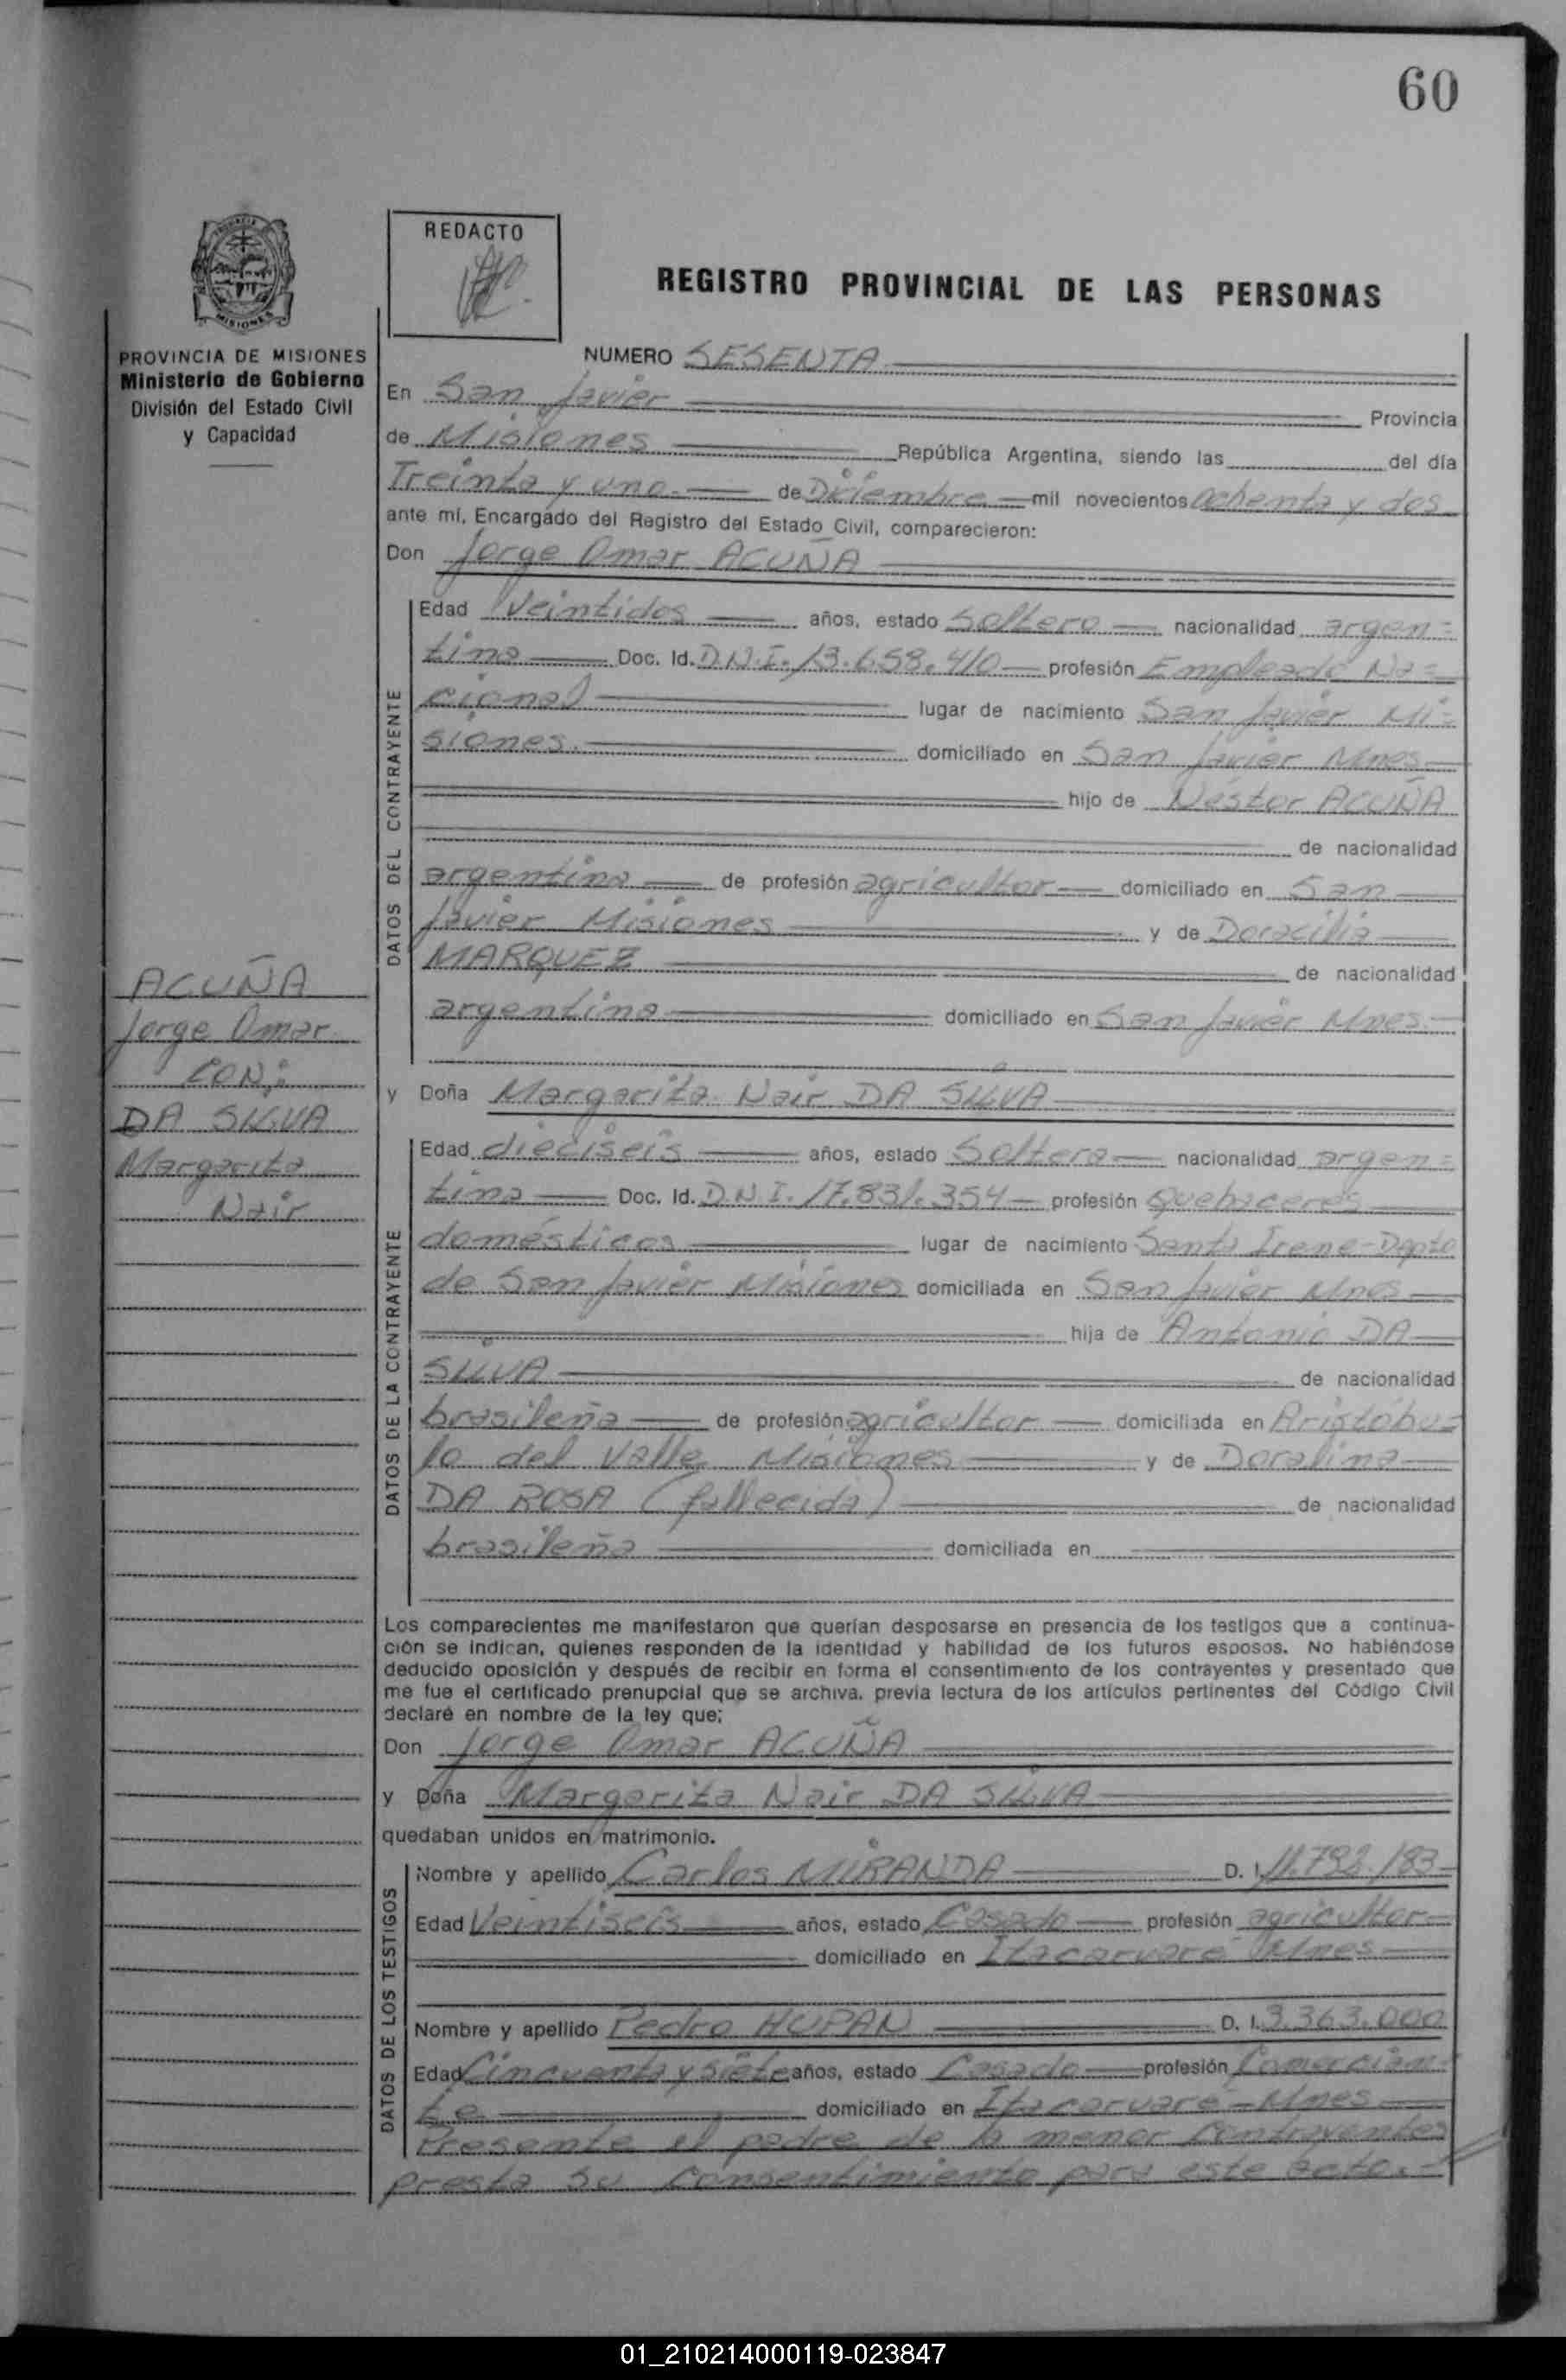 60
REDACTO
REGISTRO PROVINCIAL DE LAS PERSONAS
PROVINCIA DE MISIONES
Ministerio de Gobierno
División del Estado Civil
y Capacidad
ACUÑA
Jorge Omar
CON:
DA SILVA
Margarita
Nair
NUMERO SESENTA
En San Javier Provincia
de Misiones República Argentina, siendo las del día
Treinta y uno de Diciembre mil novecientos ochenta y dos
ante mí, Encargado del Registro del Estado Civil, comparecieron:
Don Jorge Omar ACUÑA
DATOS DEL CONTRAYENTE
Edad Veintidos años, estado Soltero nacionalidad argen=
tina Doc. Id. D.N.I. 13.658.410 profesión Empleado Na=
cional lugar de nacimiento San Javier Mi=
siones. domiciliado en San Javier Mnes
hijo de Néstor ACUÑA
de nacionalidad
argentina de profesión agricultor domiciliado en San
Javier Misiones y de Doracilia
MARQUEZ de nacionalidad
argentina domiciliado en San Javier Mnes.
y Doña Margarita Nair DA SILVA
DATOS DE LA CONTRAYENTE
Edad dieciseis años, estado Soltera nacionalidad argen=
tina Doc. Id. D.N.I. 17.831.354 profesión Quehaceres
domésticos lugar de nacimiento Santa Irene-Depto
de San Javier Misiones domiciliada en San Javier Mnes
hija de Antonio DA
SILVA de nacionalidad
brasileña de profesión agricultor domiciliada en Aristóbu=
lo del Valle Misiones y de Doralina
DA ROSA (fallecida) de nacionalidad
brasileña domiciliada en
Los comparecientes me manifestaron que querían desposarse en presencia de los testigos que a continua-
ción se indican, quienes responden de la identidad y habilidad de los futuros esposos. No habiéndose
deducido oposición y después de recibir en forma el consentimiento de los contrayentes y presentado que
me fue el certificado prenupcial que se archiva, previa lectura de los artículos pertinentes del Código Civil
declaré en nombre de la ley que;
Don Jorge Omar ACUÑA
y Doña Margarita Nair DA SILVA
quedaban unidos en matrimonio.
DATOS DE LOS TESTIGOS
Nombre y apellido Carlos MIRANDA D. I. 11.792.183
Edad Veintiseis años, estado Casado profesión agricultor
domiciliado en Itacaruaré Mnes
Nombre y apellido Pedro HUPAN D. I. 3.363.000
Edad Cincuenta y siete años, estado Casado profesión Comercian
te domiciliado en Itacaruaré-Mnes
Presente el padre de la menor Contrayentes
presta su consentimiento para este acto.
01_210214000119-023847